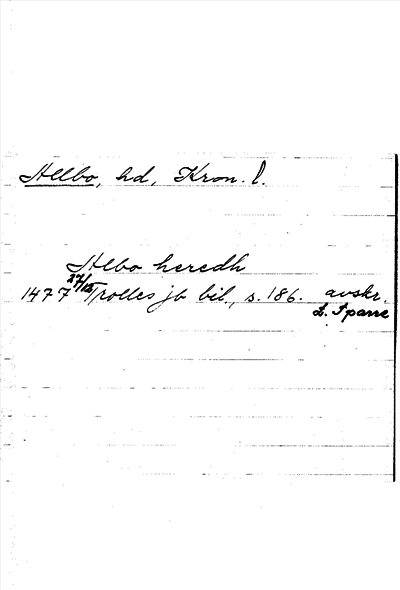 Allbo, hd, Kron. l.
Albo heredh
1477 27/12 Trolles jb bil., s. 186. avskr.
L. Sparre